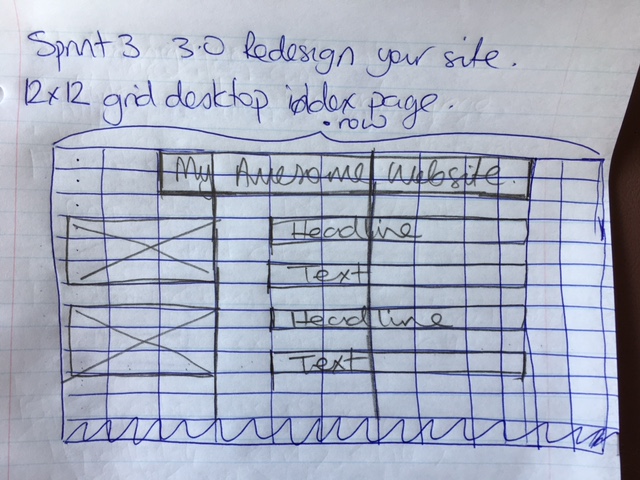 Sprint 3 3.0 Redesign your site.
12x12 grid desktop index page.
.row
My Awesome Website.
Headline
Text
Headline
Text